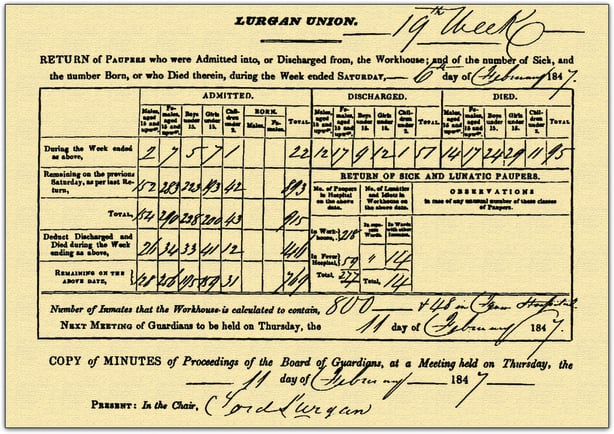 LURGAN UNION. — 19th Week
RETURN of PAUPERS who were Admitted into, or Discharged from, the Workhouse; and of the number of Sick, and
the number Born, or who Died therein, during the Week ended SATURDAY,— 6th day of February 1847.
ADMITTED. DISCHARGED. DIED.
Males, aged 15 and upwds. Females, aged 15 and upwds. Boys under 15. Girls under 15. Children under 2. BORN. Males. Females. TOTAL. Males, aged 15 and upwds. Females, aged 15 and upwds. Boys under 15. Girls under 15. Children under 2. TOTAL. Males, aged 15 and upwds. Females, aged 15 and upwds. Boys under 15. Girls under 15. Children under 2. TOTAL.
During the Week ended as above, 2 7 5 7 1 22 12 17 9 12 1 51 14 17 24 29 11 95
Remaining on the previous Saturday, as per last Return, 152 283 223 193 42 893
TOTAL, 154 290 228 200 43 915
Deduct Discharged and Died during the Week ending as above, 26 34 33 41 12 146
REMAINING ON THE ABOVE DATE, 128 256 195 159 31 769
RETURN OF SICK AND LUNATIC PAUPERS.
No. of Paupers in Hospital on the above date. No. of Lunatics and Idiots in Workhouse on the above date. OBSERVATIONS
in case of any unusual number of these classes of Paupers.
In separate Wards. In Wards with other Inmates.
In Workhouse, 218
In Fever Hospital, 59 " 14
Total, 277 Total, 14
Number of Inmates that the Workhouse is calculated to contain, 800 — + 48 in Fever Hospital.
NEXT MEETING of Guardians to be held on Thursday, the 11 day of February 1847.
COPY of MINUTES of Proceedings of the Board of Guardians, at a Meeting held on Thursday, the
— 11 day of February — 1847 —
PRESENT: In the Chair, Lord Lurgan